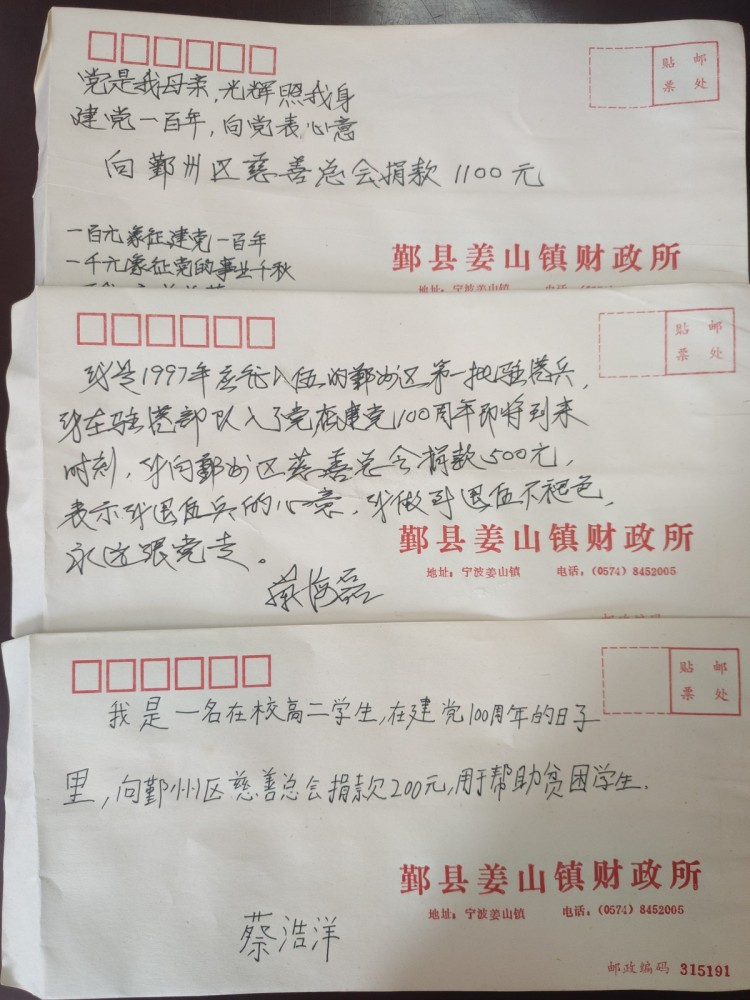 贴 邮
票 处
党是我母亲,光辉照我身
建党一百年,向党表心意
向鄞州区慈善总会捐款1100元
一百元象征建党一百年
一千元象征党的事业千秋
鄞县姜山镇财政所
地址:宁波姜山镇
贴 邮
票 处
我是1997年应征入伍的鄞州区第一批驻港兵,
我在驻港部队入了党,在建党100周年即将到来
时刻,我向鄞州区慈善总会捐款500元,
表示我退伍兵的心意,我做到退伍不褪色,
永远跟党走。
鄞县姜山镇财政所
地址:宁波姜山镇 电话:(0574)8452005
蔡海磊
贴 邮
票 处
我是一名在校高二学生,在建党100周年的日子
里,向鄞州区慈善总会捐款200元,用于帮助贫困学生.
鄞县姜山镇财政所
地址:宁波姜山镇 电话:(0574)8452005
蔡浩洋
邮政编码 315191